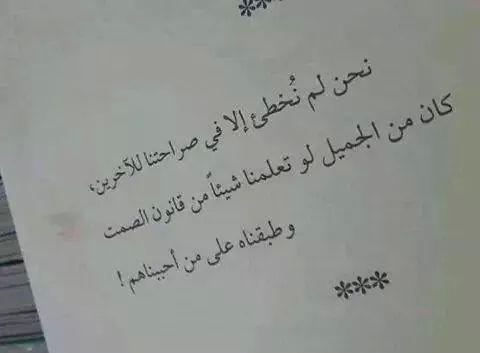 ***
نحن لم نُخطئ إلا في صراحتنا للآخرين،
كان من الجميل لو تعلمنا شيئاً من قانون الصمت
وطبقناه على من أحببناهم !
***